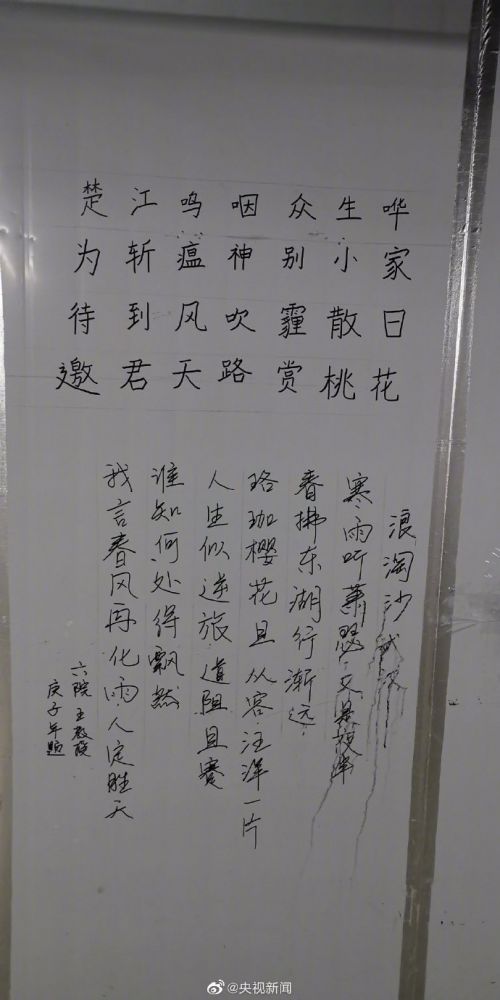 楚江鸣咽众生哗
为斩瘟神别小家
待到风吹霾散日
邀君天路赏桃花
浪淘沙 武汉
寒雨听萧瑟
春拂东湖行渐远
珞珈樱花且从容汪洋一片
人生似逆旅 道阻且蹇
谁知何处得飘然
我言春风再化雨人定胜天
六院 王
庚子年题
@央视新闻